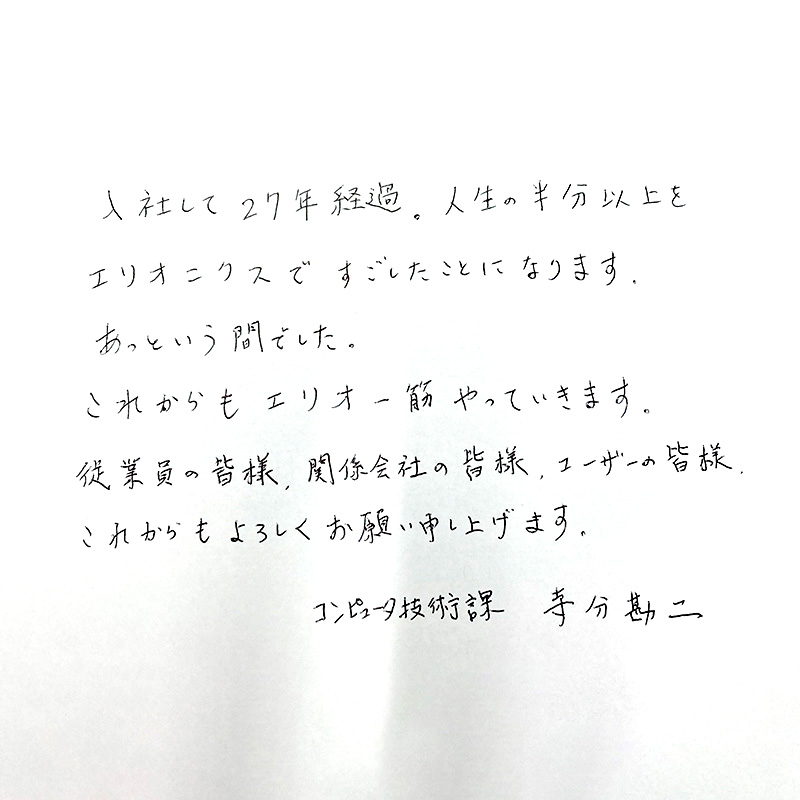 入社して27年経過。人生の半分以上を
エリオニクスですごしたことになります.
あっという間でした。
これからもエリオ一筋やっていきます。
従業員の皆様,関係会社の皆様,ユーザーの皆様,
これからもよろしくお願い申し上げます。
コンピュータ技術課 寺分勘二